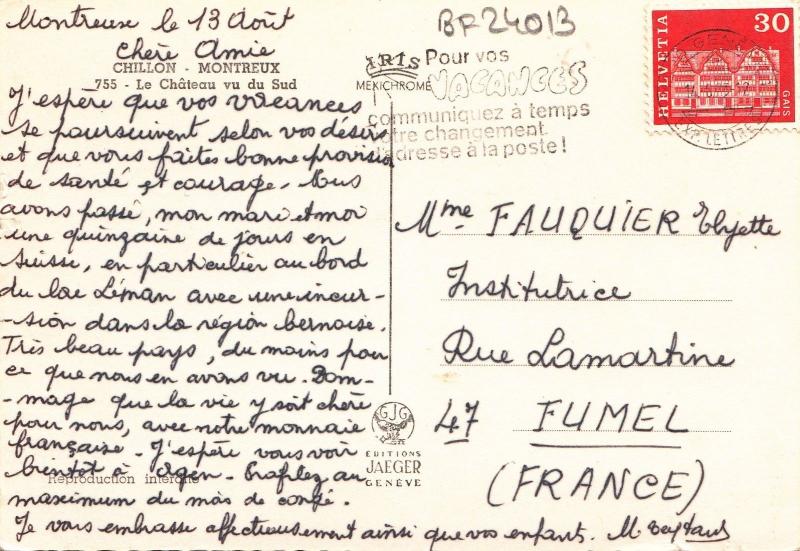 Montreux le 13 Août
Chère Amie
CHILLON - MONTREUX
755 - Le Château vu du Sud
J'espère que vos vacances
se poursuivent selon vos désirs
et que vous faites bonne provision
de santé et courage. Nous
avons passé, mon mari et moi
une quinzaine de jours en
Suisse, en particulier au bord
du lac Léman avec une incur-
-sion dans la région bernoise.
Très beau pays, du moins pour
ce que nous en avons vu. Dom-
-mage que la vie y soit chère
pour nous, avec notre monnaie
française. J'espère vous voir
bientôt à Agen. Profitez au
maximum du mois de congé.
Je vous embrasse affectueusement ainsi que vos enfants. M
Reproduction interdite
BR24013
IRIS
MEXICHROME
Pour vos
VACANCES
communiquez à temps
votre changement
d'adresse à la poste!
HELVETIA
30
GAIS
GENÈVE
EXP. LETTRES
Mme FAUQUIER Elyette
Institutrice
Rue Lamartine
47 FUMEL
(FRANCE)
GJG
EDITIONS
JAEGER
GENÈVE